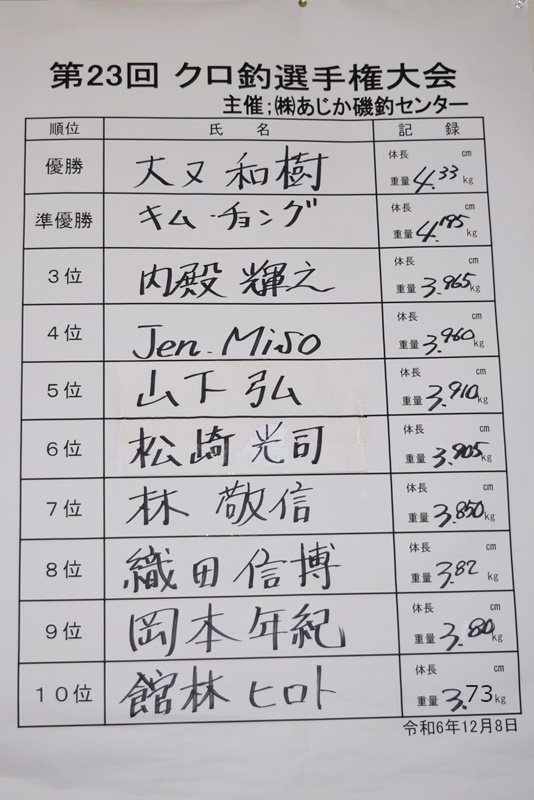 第23回 クロ釣選手権大会
主催;㈱あじか磯釣センター
順位 氏名 記録
優勝 大又和樹 体長 cm 重量 4.33 kg
準優勝 キム チョング 体長 cm 重量 4.195 kg
3位 内殿輝之 体長 cm 重量 3.965 kg
4位 Jen. Miso 体長 cm 重量 3.960 kg
5位 山下弘 体長 cm 重量 3.910 kg
6位 松崎光司 体長 cm 重量 3.905 kg
7位 林敬信 体長 cm 重量 3.850 kg
8位 織田信博 体長 cm 重量 3.82 kg
9位 岡本年紀 体長 cm 重量 3.80 kg
10位 舘林ヒロト 体長 cm 重量 3.73 kg
令和6年12月8日